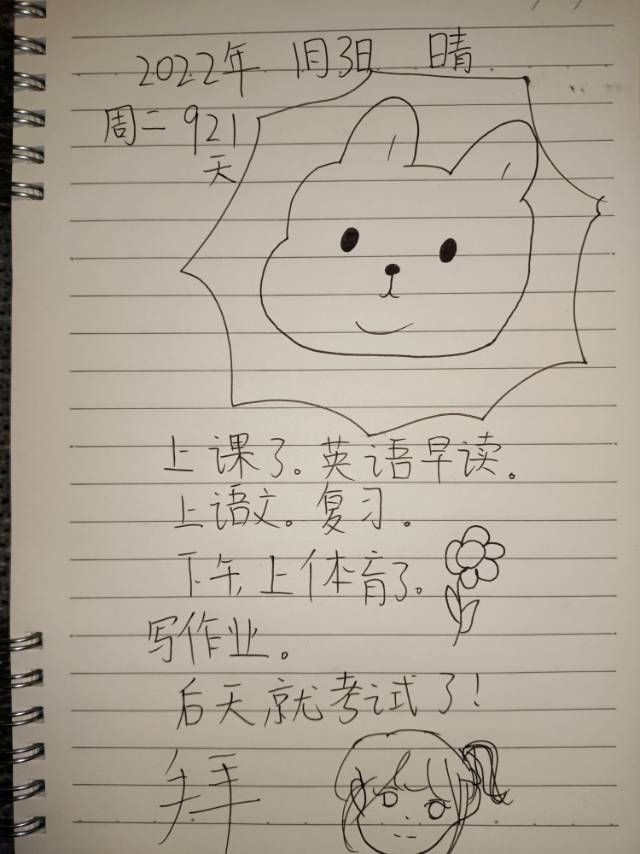 2022年 1月3日 晴
周二 921
天
上课了。英语早读。
上语文。复习。
下午,上体育了。
写作业。
后天就考试了!
拜